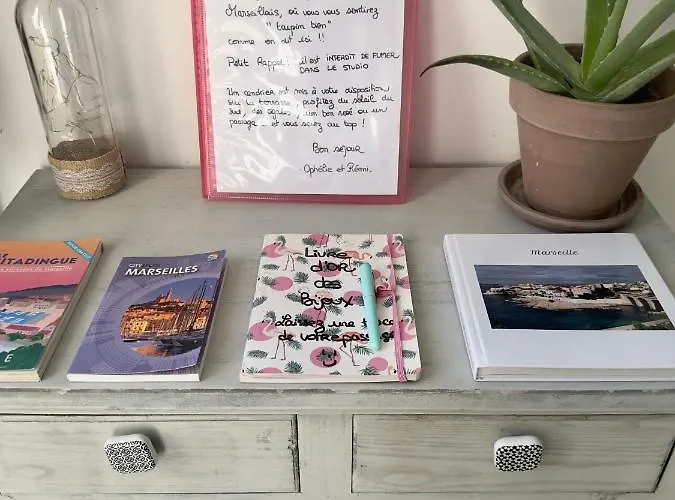 Marseillais, où vous vous sentirez
"taupin bien"
comme on dit ici !!
Petit Rappel: il est INTERDIT DE FUMER
DANS LE STUDIO
Un cendrier est mis à votre disposition
sur la terrasse, profitez du soleil du
Sud, des cigales, d'un bon rosé ou un
passage et vous serez au top !
Bon séjour
Ophélie et Rémi.
MARSEILLES
Livre
d'OR
des
Bijoux
Laissez une trace
de votre passage
Marseille